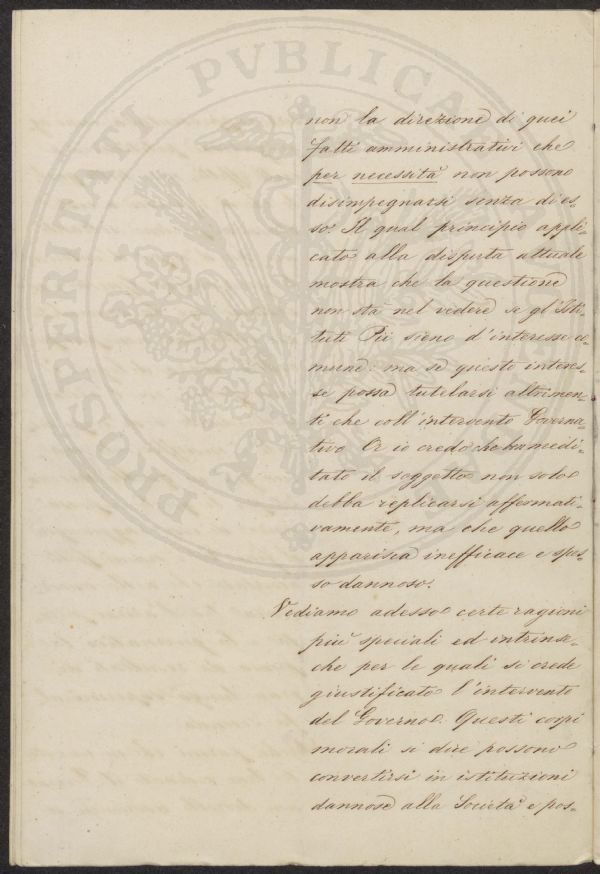 PROSPERITATI PVBLICAE
non la direzione di quei
fatti amministrativi che
per necessità non possono
disimpegnarsi senza di es-
so. Il qual principio appli-
cato alla disputa attuale
mostra che la questione
non stà nel vedere se gl'Isti-
tuti Pii sieno d'interesse co-
mune: ma se questo interes-
se possa tutelarsi altrimen-
ti che coll'intervento Governa-
tivo. Or io credo che ben medi-
tato il soggetto non solo
debba replicarsi affermati-
vamente, ma che quello
apparisca inefficace e spes-
so dannoso.
Vediamo adesso certe ragioni
più speciali ed intrinse-
che per le quali si crede
giustificato l'intervento
del Governo. Questi corpi
morali si dice possono
convertirsi in istituzioni
dannose alla Società e pos-